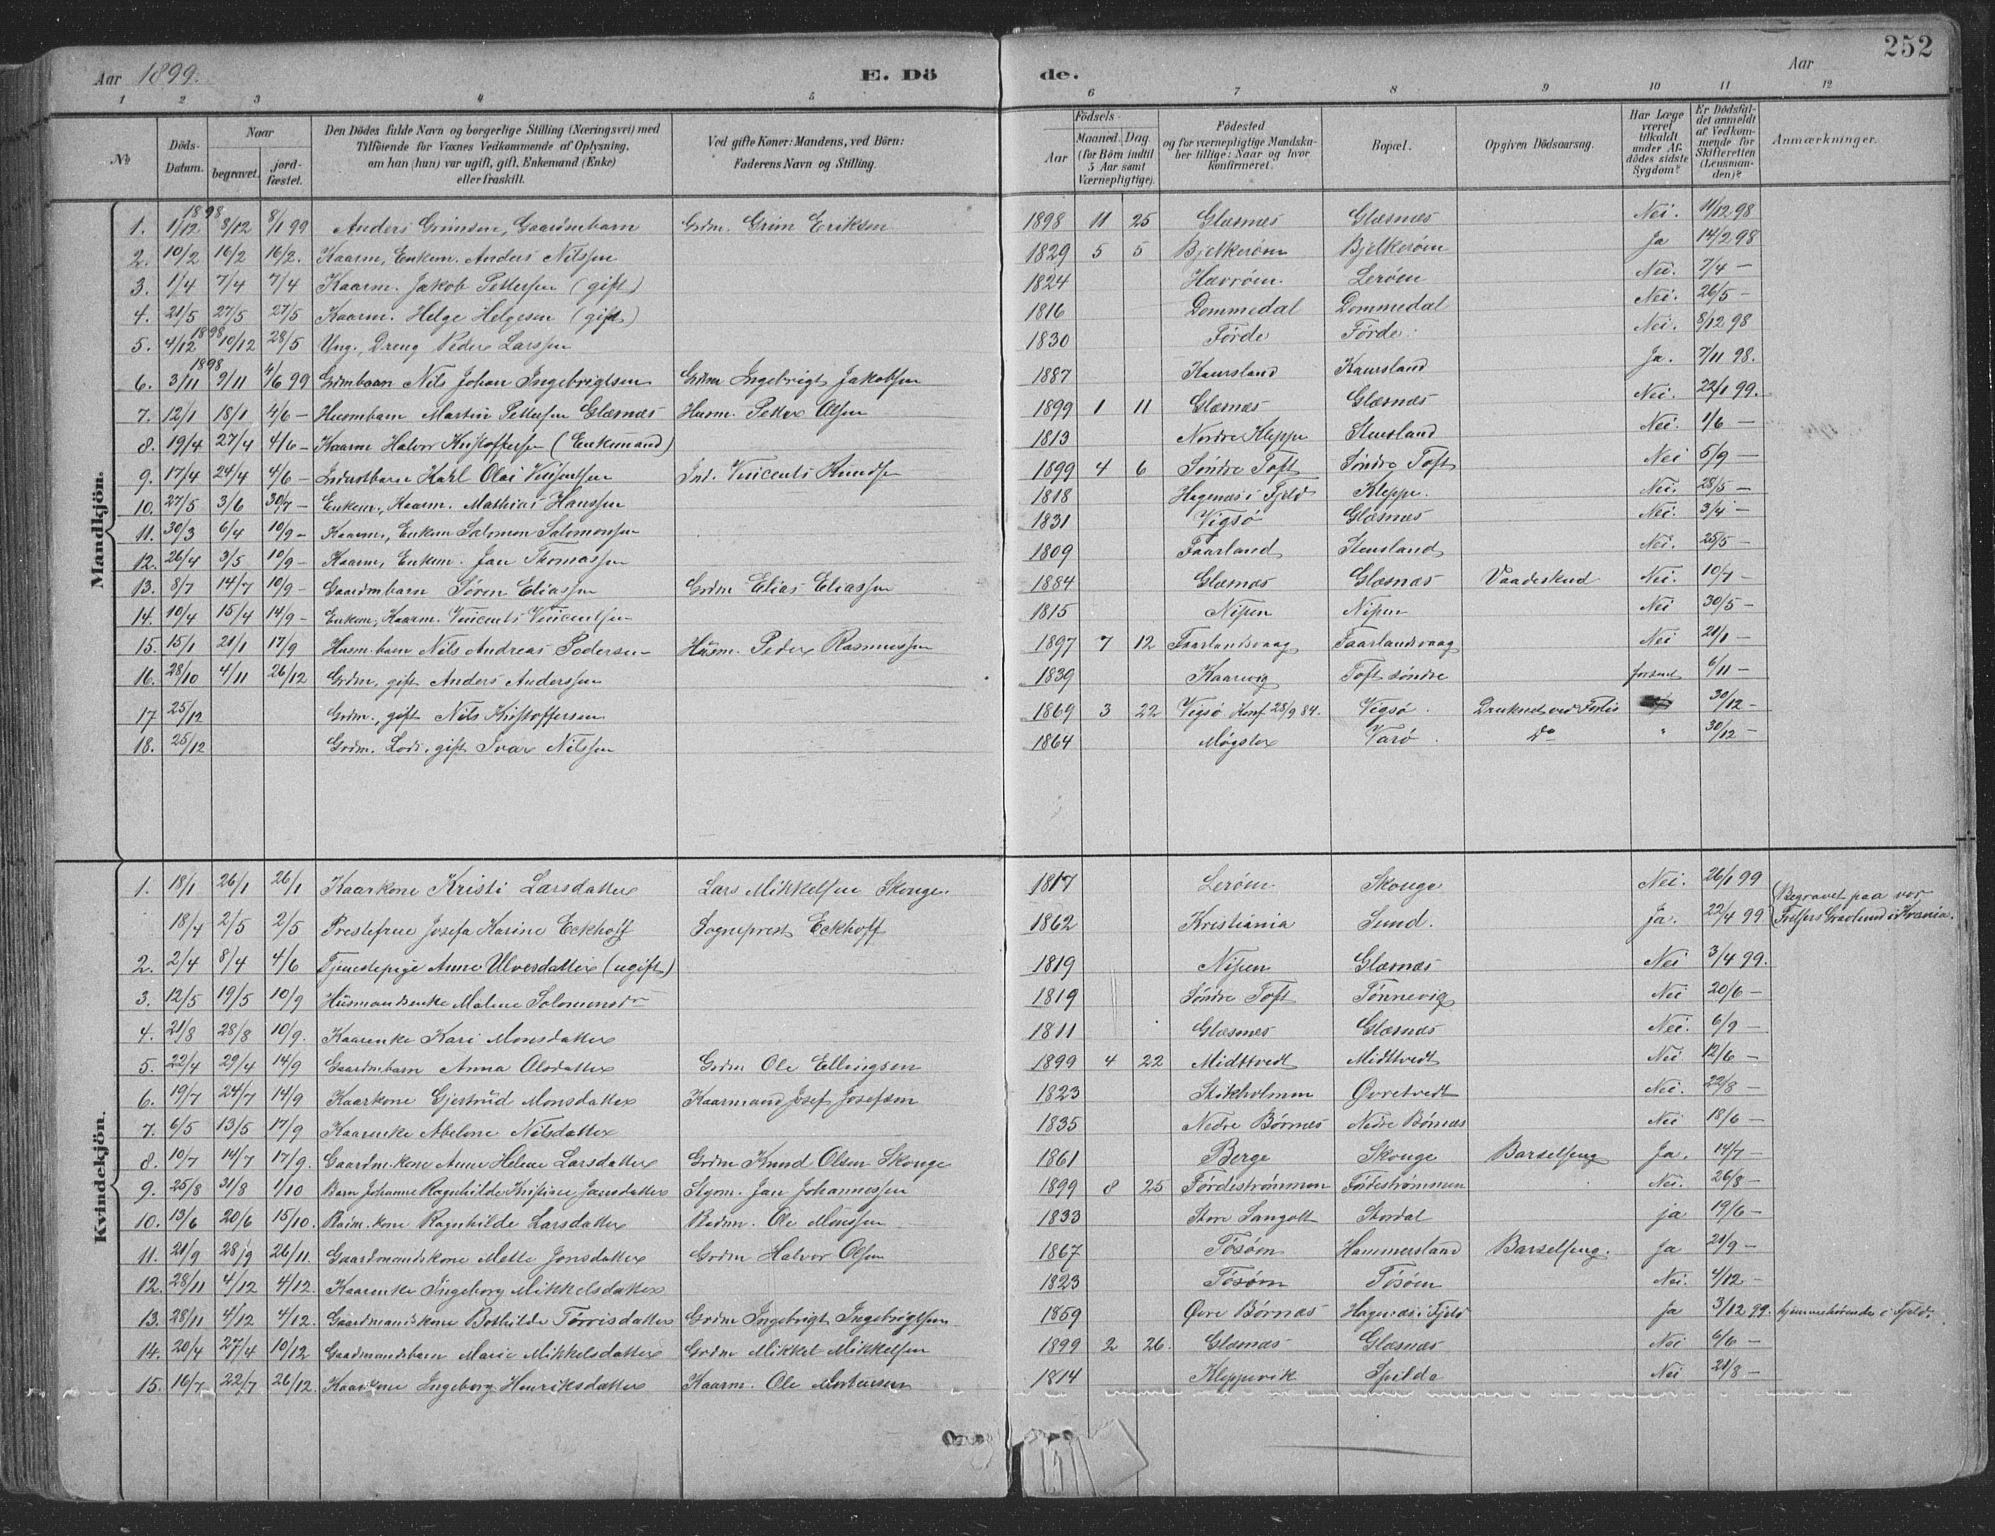 252
Aar 1899. E. Dö de. Aar
1 2 3 4 5 6 7 8 9 10 11 12
No Döds-Datum. Naar begravet. jordfæstet. Den Dödes fulde Navn og borgerlige Stilling (Næringsvei) med Tilföiende for Voxnes Vedkommende af Oplysning, om han (hun) var ugift, gift, Enkemand (Enke) eller fraskilt. Ved gifte Koner: Mandens, ved Börn: Faderens Navn og Stilling. Födsels- Aar Maaned. Dag. (for Börn indtil 5 Aar samt Værnepligtige). Födested og for værnepligtige Mandskaber tillige: Naar og hvor konfirmeret. Bopæl. Opgiven Dödsaarsag. Har Læge været tilkaldt under Afdödes sidste Sygdom? Er Dödsfaldet anmeldt af Vedkommende for Skifteretten (Lensmanden)? Anmærkninger.
Mandkjön.
1. 1898 1/12 8/12 8/1 99 Anders Grimsen, Gaardmbarn Grdm. Grim Eriksen 1898 11 25 Glæsnæs Glæsnæs Nei. 11/12 98
2. 10/2 16/2 16/2. Kaarm, Enkem. Anders Nilssen 1829 5 5 Bjelkerøm Bjelkerøm Ja 14/2 98
3. 1/4 7/4 7/4 Kaarm. Jakob Pettersen (gift) 1824 Havrøm. Lerøm Nei. 7/4 —
4. 21/5 27/5 27/5 Kaarm. Helge Helgesen (gift) 1816 Dommedal Dommedal Nei. 26/5 —
5. 4/12 1898 10/12 28/5 Ung. Dreng Peder Larssen 1830 Førde Førde. Nei. 8/12 98
6. 3/11 1898 9/11 4/6 99 Grdmbarn Nils Johan Ingebrigtsen Grdm Ingebrigt Jakobsen 1887 Kausland Kausland Ja. 7/11 98.
7. 12/1 18/1 4/6 — Husmbarn Martin Pettersen Glæsnæs Husm. Petter Olsen 1899 1 11 Glæsnæs Glæsnæs Nei. 22/1 99.
8. 19/4 27/4 4/6 — Kaarm Halvor Kristoffersen (Enkemand) 1813 Nordre Kleppe Stensland Nei. 1/6 —
9. 17/4 24/4 4/6 — Inderstbarn Karl Olai Vinsentsen Ind. Vincents Knudsen 1899 4 6 Søndre Toft Søndre Toft Nei 5/9 —
10. 27/5 3/6 30/7 — Enkem., Kaarm. Mathias Hanssen 1818 Hagenæs i Fjeld Kleppe. Nei. 28/5 —
11. 30/3 6/4 10/9 — Kaarm, Enkem Salomon Salomonsen 1831 Vigsø Glæsnæs Nei. 3/4 —
12. 26/4 3/5 10/9 — Kaarm, Enkem. Jan Thomassen 1809 Faarland Stensland Nei. 25/5 —
13. 8/7 14/7 10/9 — Gaardmbarn Søren Eliassen Grdm Elias Eliassen 1884 Glæsnæs Glæsnæs Vaadeskud Nei. 10/7 —
14. 10/4 15/4 14/9 — Enkem, Kaarm. Vincents Vincentsen 1815 Nipen Nipen Nei 30/5 —
15. 15/1 21/1 17/9 Husm. barn Nils Andreas Pedersen Husm. Peder Rasmussen 1897 7 12 Faarlandsvaag Faarlandsvaag Nei 21/1 —
16. 28/10 4/11 26/12 Grdm, gift Anders Anderssen 1839 Kaarvig Toft søndre 6/11 —
17 25/12 Grdm., gift Nils Kristoffersen 1869 3 22 Vigsø Konf 28/9 84. Vigsø. Druknet ved 30/12 —
18. 25/12 Grdm. Lods, gift Ivar Nilssen 1864 Møgster Varø. Do " 30/12 —
Kvindekjön.
1. 18/1 26/1 26/1 Kaarkone Kristi Larsdatter Lars Mikkelsen Skouge. 1817 Lerøm Skouge Nei. 26/1 99
18/4 2/5 2/5 Prestefrue Josefa Karine Eckhoff Sogneprest Eckhoff 1862 Kristiania Sund. Ja. 22/4 99. Begravet paa vor Frelsers Gravlund i Krania.
2. 2/4 8/4 4/6 Tjenestepige Anne Ulvesdatter (ugift) 1819 Nipen Glæsnæs Nei 3/4 99.
3. 12/5 19/5 10/9 Husmandsenke Malene Salomonsdr 1819 Søndre Toft Tønnevig Nei 20/6 —
4. 21/8 28/8 10/9. Kaarenke Kari Monsdatter 1811 Glæsnæs Glæsnæs Nei. 6/9 —
5. 22/4 29/4 14/9 Gaardmbarn Anna Olsdatter Grdm Ole Ellingsen 1899 4 22 Midttvedt Midttvedt Nei 12/6 —
6. 19/7 24/7 14/9 Kaarkone Gjertrud Monsdatter Kaarmand Josef Josefsen 1823 Stikholmen Øvretvedt Nei. 22/8 —
7. 6/5 13/5 17/9 Kaarenke Abelone Nilsdatter 1835 Nedre Børnæs Nedre Børnæs Nei 18/6 —
8. 10/7 14/7 17/9. Gaardm. kone Anne Helene Larsdatter Grdm Knud Olsen Skouge 1861 Berge Skouge Barselfeng Ja. 14/7 —
9. 25/8 31/8 1/10 Barn Johanne Ragnhilde Kristine Jansdatter Jan Johannessen 1899 8 25 Førdestrømmen Førdestrømmen Nei. 26/8 —
10. 13/6 20/6 15/10. kone Ragnhilde Larsdatter Ole Monssen 1833 Store Sangolt Stordal ja 19/6 —
11. 21/9 28/9 26/11. Gaardmandskone Mette Jonsdatter Grdm Halvor Olsen 1867 Tøsøm Hammersland Barselfeng. Ja 21/9 —
12. 28/11 4/12 4/12. Kaarenke Ingeborg Mikkelsdatter 1823 Tøsøm Tøsøm Nei 4/12 —
13. 28/11 4/12 4/12. Gaardmandskone Bothilde Tørrisdatter Grdm Ingebrigt Ingebrigtsen 1859 Øvre Børnæs Hagenæs i Fjeld Ja 3/12 99. hjemmehørende i Fjeld.
14. 20/4 27/4 10/12 Gaardmandsbarn Marie Mikkelsdatter Grdm Mikkel Mikkelsen 1899 2 26. Glæsnæs Glæsnæs Nei 6/6 —
15. 16/7 22/7 26/12. Kaarkone Ingeborg Henriksdatter Kaarm. Ole Mortensen 1814 Kleppevik Spilde Nei 21/8 —